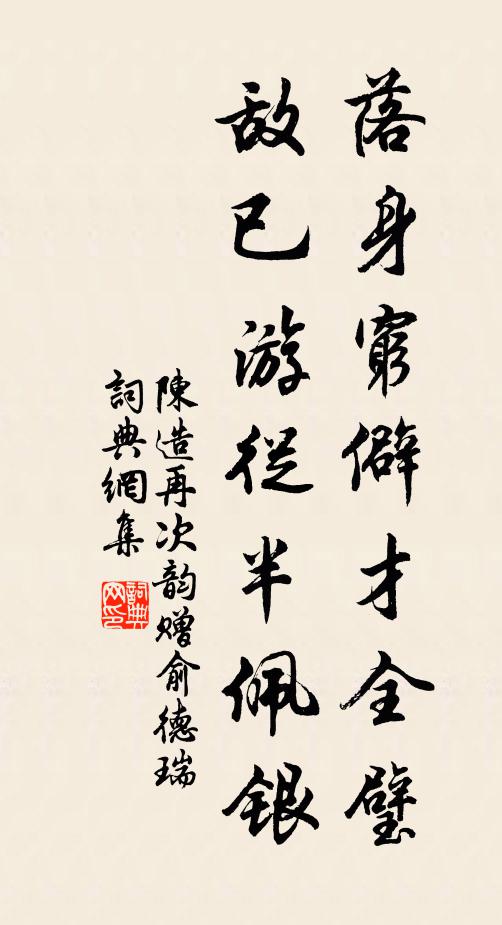 落身窮僻才全璧
敌已游從半佩銀
陳造再次韵赠俞德瑞
詞典網集
詞典网印